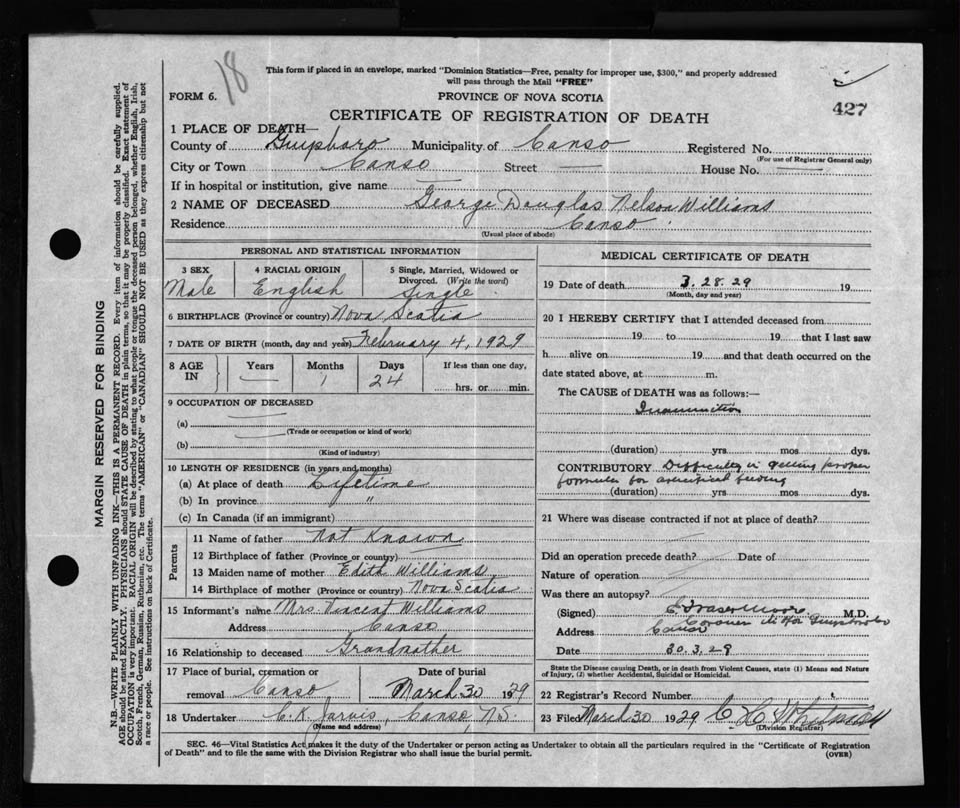 18
This form if placed in an envelope, marked "Dominion Statistics—Free, penalty for improper use, $300," and properly addressed
will pass through the Mail "FREE"
FORM 6.
PROVINCE OF NOVA SCOTIA
427
CERTIFICATE OF REGISTRATION OF DEATH
1 PLACE OF DEATH—
County of Guysboro Municipality of Canso Registered No.
(For use of Registrar General only)
City or Town Canso Street — House No. —
If in hospital or institution, give name
2 NAME OF DECEASED George Douglas Nelson Williams
Residence Canso
(Usual place of abode)
PERSONAL AND STATISTICAL INFORMATION
3 SEX Male
4 RACIAL ORIGIN English
5 Single, Married, Widowed or Divorced. (Write the word) Single
6 BIRTHPLACE (Province or country) Nova Scotia
7 DATE OF BIRTH (month, day and year) February 4, 1929
8 AGE IN
Years —
Months 1
Days 24
If less than one day,
hrs. or min.
9 OCCUPATION OF DECEASED
(a) —
(Trade or occupation or kind of work)
(b) —
(Kind of industry)
10 LENGTH OF RESIDENCE (in years and months)
(a) At place of death Lifetime
(b) In province "
(c) In Canada (if an immigrant)
Parents
11 Name of father Not Known
12 Birthplace of father (Province or country)
13 Maiden name of mother Edith Williams
14 Birthplace of mother (Province or country) Nova Scotia
15 Informant's name Mrs. Vincent Williams
Address Canso
16 Relationship to deceased Grandmother
17 Place of burial, cremation or removal Canso
Date of burial March 30 1929
18 Undertaker C. K. Jarvis, Canso, N.S.
(Name and address)
MEDICAL CERTIFICATE OF DEATH
19 Date of death 3. 28. 29 19
(Month, day and year)
20 I HEREBY CERTIFY that I attended deceased from
19 to 19 that I last saw
h alive on 19 and that death occurred on the
date stated above, at m.
The CAUSE of DEATH was as follows:—
Inanunition
(duration) yrs. mos. dys.
CONTRIBUTORY Difficulty in getting proper
formula for artificial feeding
(duration) yrs. mos. dys.
21 Where was disease contracted if not at place of death?
Did an operation precede death? Date of
Nature of operation
Was there an autopsy?
(Signed) Fraser Moore M.D.
Coroner
Address Canso
Date 30.3.29
State the Disease causing Death, or in death from Violent Causes, state (1) Means and Nature
of Injury, (2) whether Accidental, Suicidal or Homicidal.
22 Registrar's Record Number
23 Filed March 30 1929 C H
(Division Registrar)
SEC. 46—Vital Statistics Act makes it the duty of the Undertaker or person acting as Undertaker to obtain all the particulars required in the "Certificate of Registration
of Death" and to file the same with the Division Registrar who shall issue the burial permit.
(OVER)
MARGIN RESERVED FOR BINDING
N.B.—WRITE PLAINLY WITH UNFADING INK—THIS IS A PERMANENT RECORD. Every item of information should be carefully supplied.
AGE should be stated EXACTLY. PHYSICIANS should STATE CAUSE OF DEATH in plain terms, so that it may be properly classified. Exact statement of
OCCUPATION is very important. RACIAL ORIGIN will be described by stating to what people or tongue the deceased person belonged, whether English, Irish,
Scotch, French, German, Russian, Ruthenian, etc. The terms "AMERICAN" or "CANADIAN" SHOULD NOT BE USED as they express citizenship but not
a race or people. See instructions on back of Certificate.